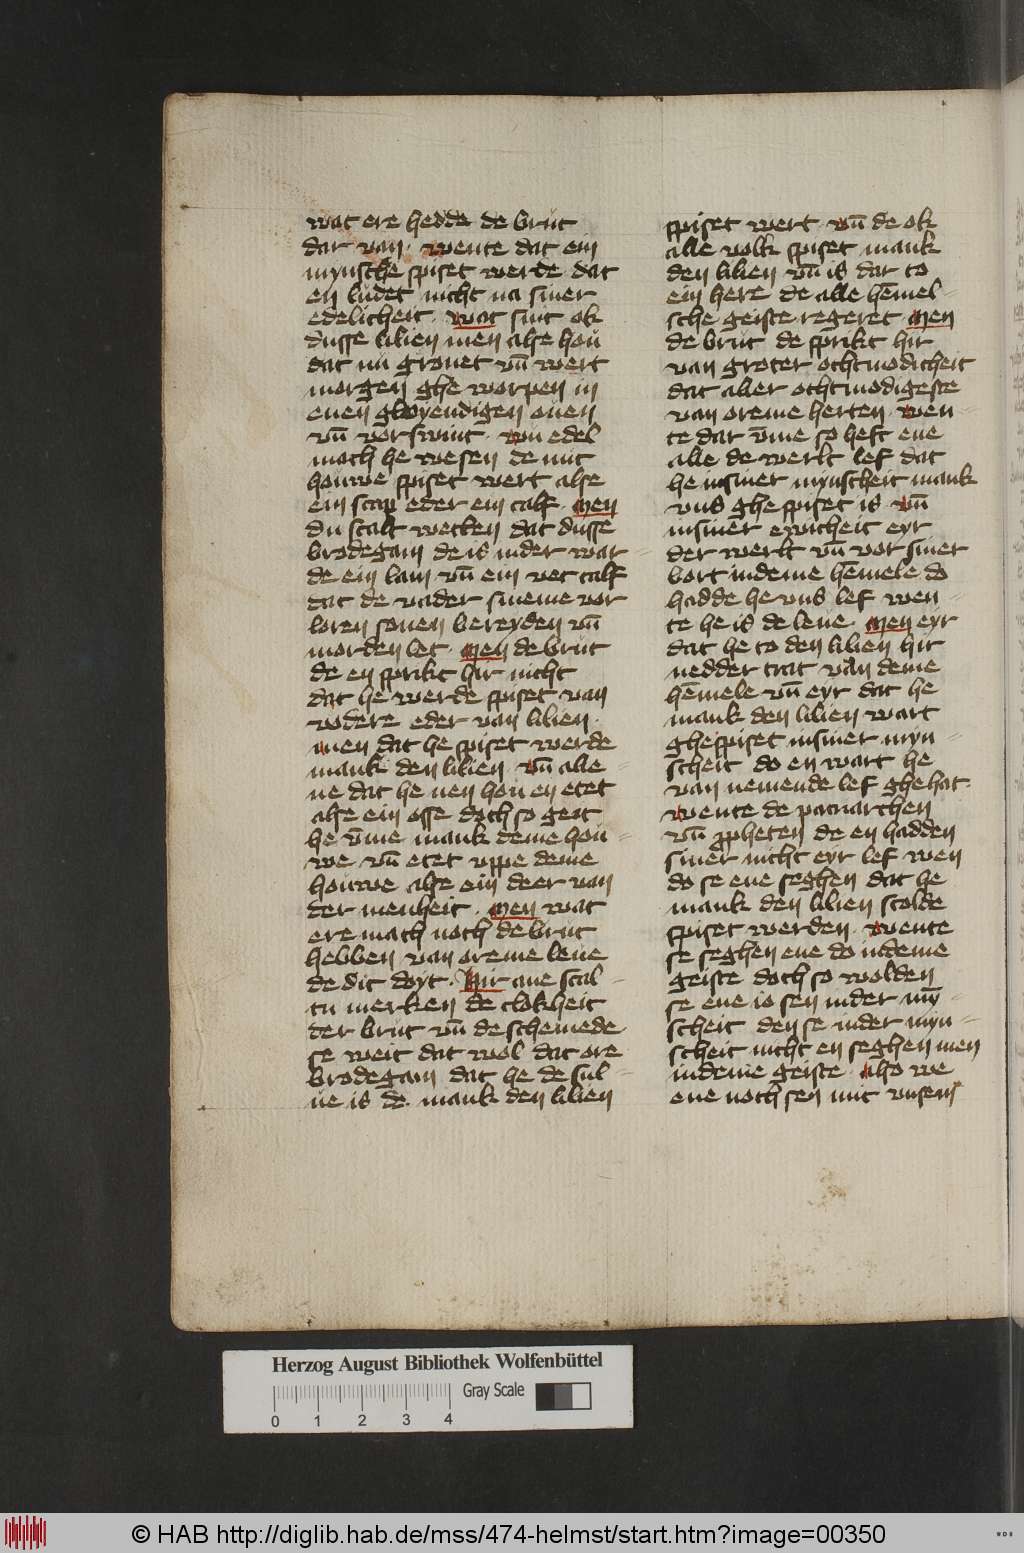 wat ere hedde de brut
dar van. wente dat ein
mynsche spiset werde dat
en ludet nicht na siner
edelicheit. wat sint ok
dusse lilien men alse hou
dat nu gronet vn̄ wert
morgen ghe worpen in
enen gloyendigen ouen
vn̄ vorswint. wu edel
mach he wesen de mit
houwe spiset wert alse
ein scap eder ein calf. Men
du scalt wetten dat dusse
brodegam de is in der war
de ein lam vn̄ ein vet calf
dat de vader sineme vor
loren sonen bereyden vn̄
morden let. Men de brut
de en sprikt hir nicht
dat he werde spiset van
vodere eder van lilien.
men dat he spiset werde
mank den lilien. vn̄ alle
ne dat he nen hou en etet
alse ein osse doch so geit
he v̄me mank deme hou
we vn̄ etet vppe deme
houwe alse ein deer van
der menheit. Men wat
ere mach noch de brut
hebben van oreme leue
de dit doyt. Hir ane scal
tu merken de clokheit
der brut vn̄ de schemede
se weit dat wol dat ore
brodegam dat he de sul
ue is de mank den lilien
spiset wert. vn̄ de ok
alle volk spiset mank
den lilien vn̄ is dar to
ein here de alle hēmel
sche geiste regeret Men
de brut de sprikt hir
van groter ochtmodicheit
dat aller ochtmodigeste
van oreme herten. wen
te dar v̄me so heft ene
alle de werlt lef dat
he in siner mynscheit mank
vns ghe spiset is. vn̄
in siner ewicheit eyr
der werlt vn̄ vor siner
bort in deme hēmele do
hadde he vns lef wen
te he is de leue. Men eyr
dat he to den lilien hir
nedder trat van deme
hēmele vn̄ eyr dat he
mank den lilien wart
ghe spiset in siner myn
scheit do en wart he
van nemende lef ghe hat.
wente de patriarchen
vn̄ ppheten de en hadden
siner nicht eyr lef wen
do se ene seghen dat he
mank den lilien scolde
spiset werden. wente
se seghen ene do in deme
geiste doch so wolden
se ene io sen in der mȳ
scheit den se in der myn
scheit nicht en seghen men
in deme geiste. Also we
ene noch sen mit vnsem
Herzog August Bibliothek Wolfenbüttel
Gray Scale
0 1 2 3 4
© HAB http://diglib.hab.de/mss/474-helmst/start.htm?image=00350